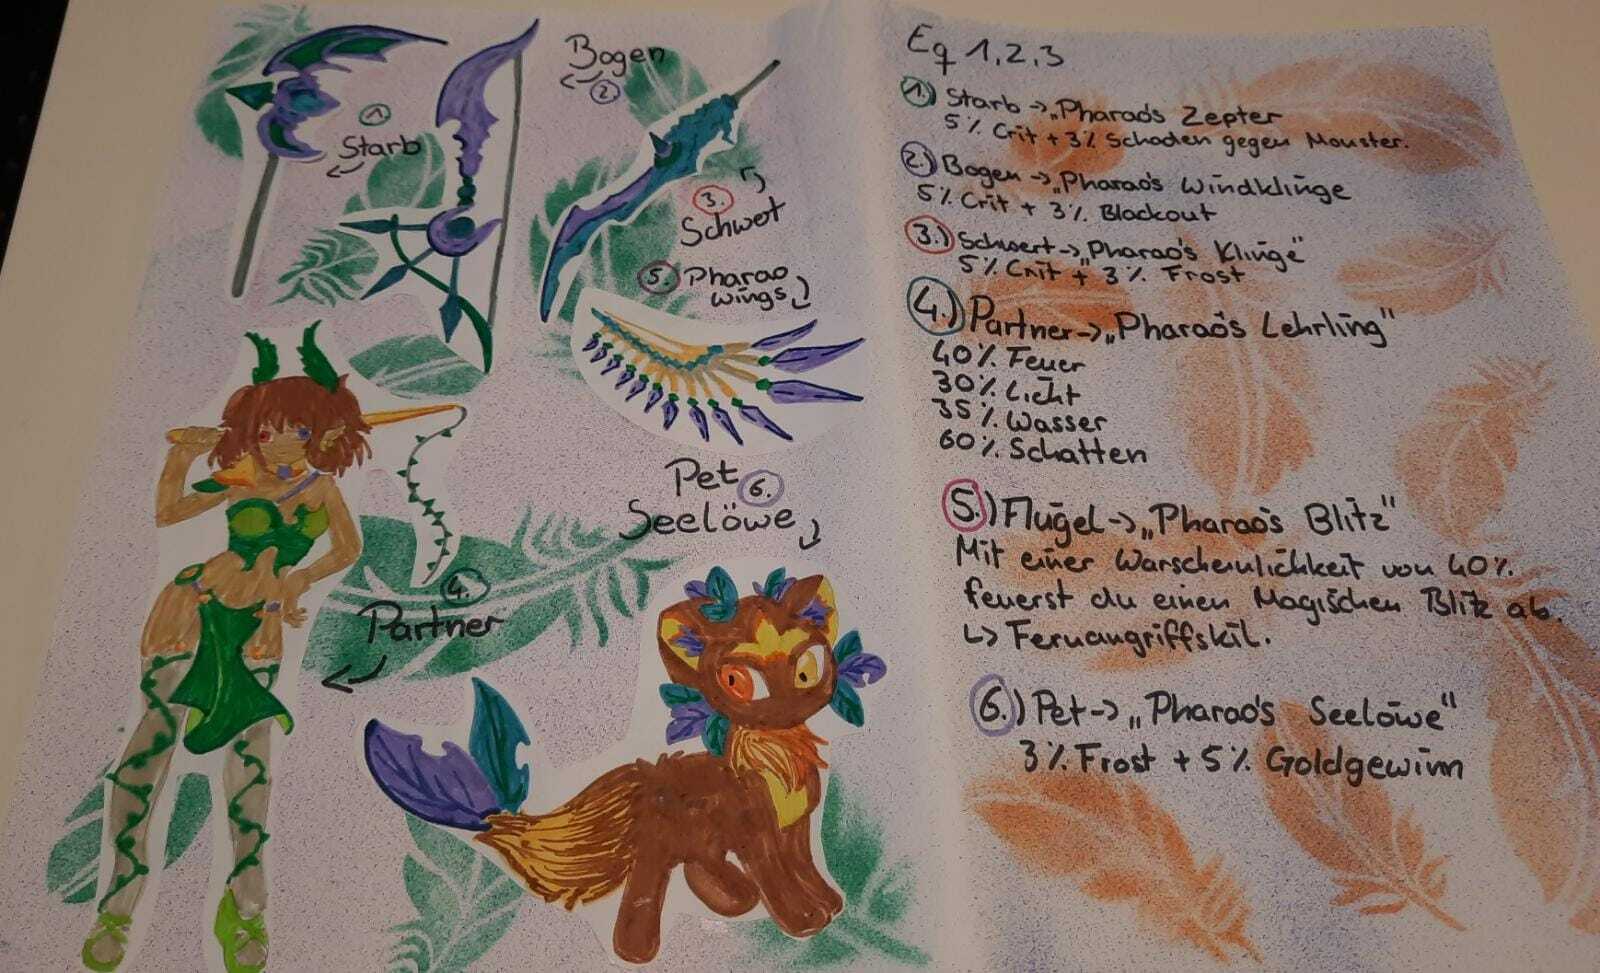 1
Starb
Bogen
2.
3.
Schwet
5. Pharao
wings
Pet 6.
Seelöwe
4.
Partner
Eq 1,2,3
1.) Starb -> „Pharao's Zepter
5% Crit + 3% Schaden gegen Monster.
2.) Bogen -> „Pharao's Windklinge
5% Crit + 3% Blackout
3.) Schwert -> „Pharao's Klinge"
5% Crit + 3% Frost
4.) Partner -> „Pharao's Lehrling"
40% Feuer
30% Licht
35% Wasser
60% Schatten
5.) Flügel -> „Pharao's Blitz"
Mit einer Warscheinlichkeit von 40%
feuerst du einen Magischen Blitz ab.
↳ Fernangriffskil.
6.) Pet -> „Pharao's Seelöwe"
3% Frost + 5% Goldgewinn